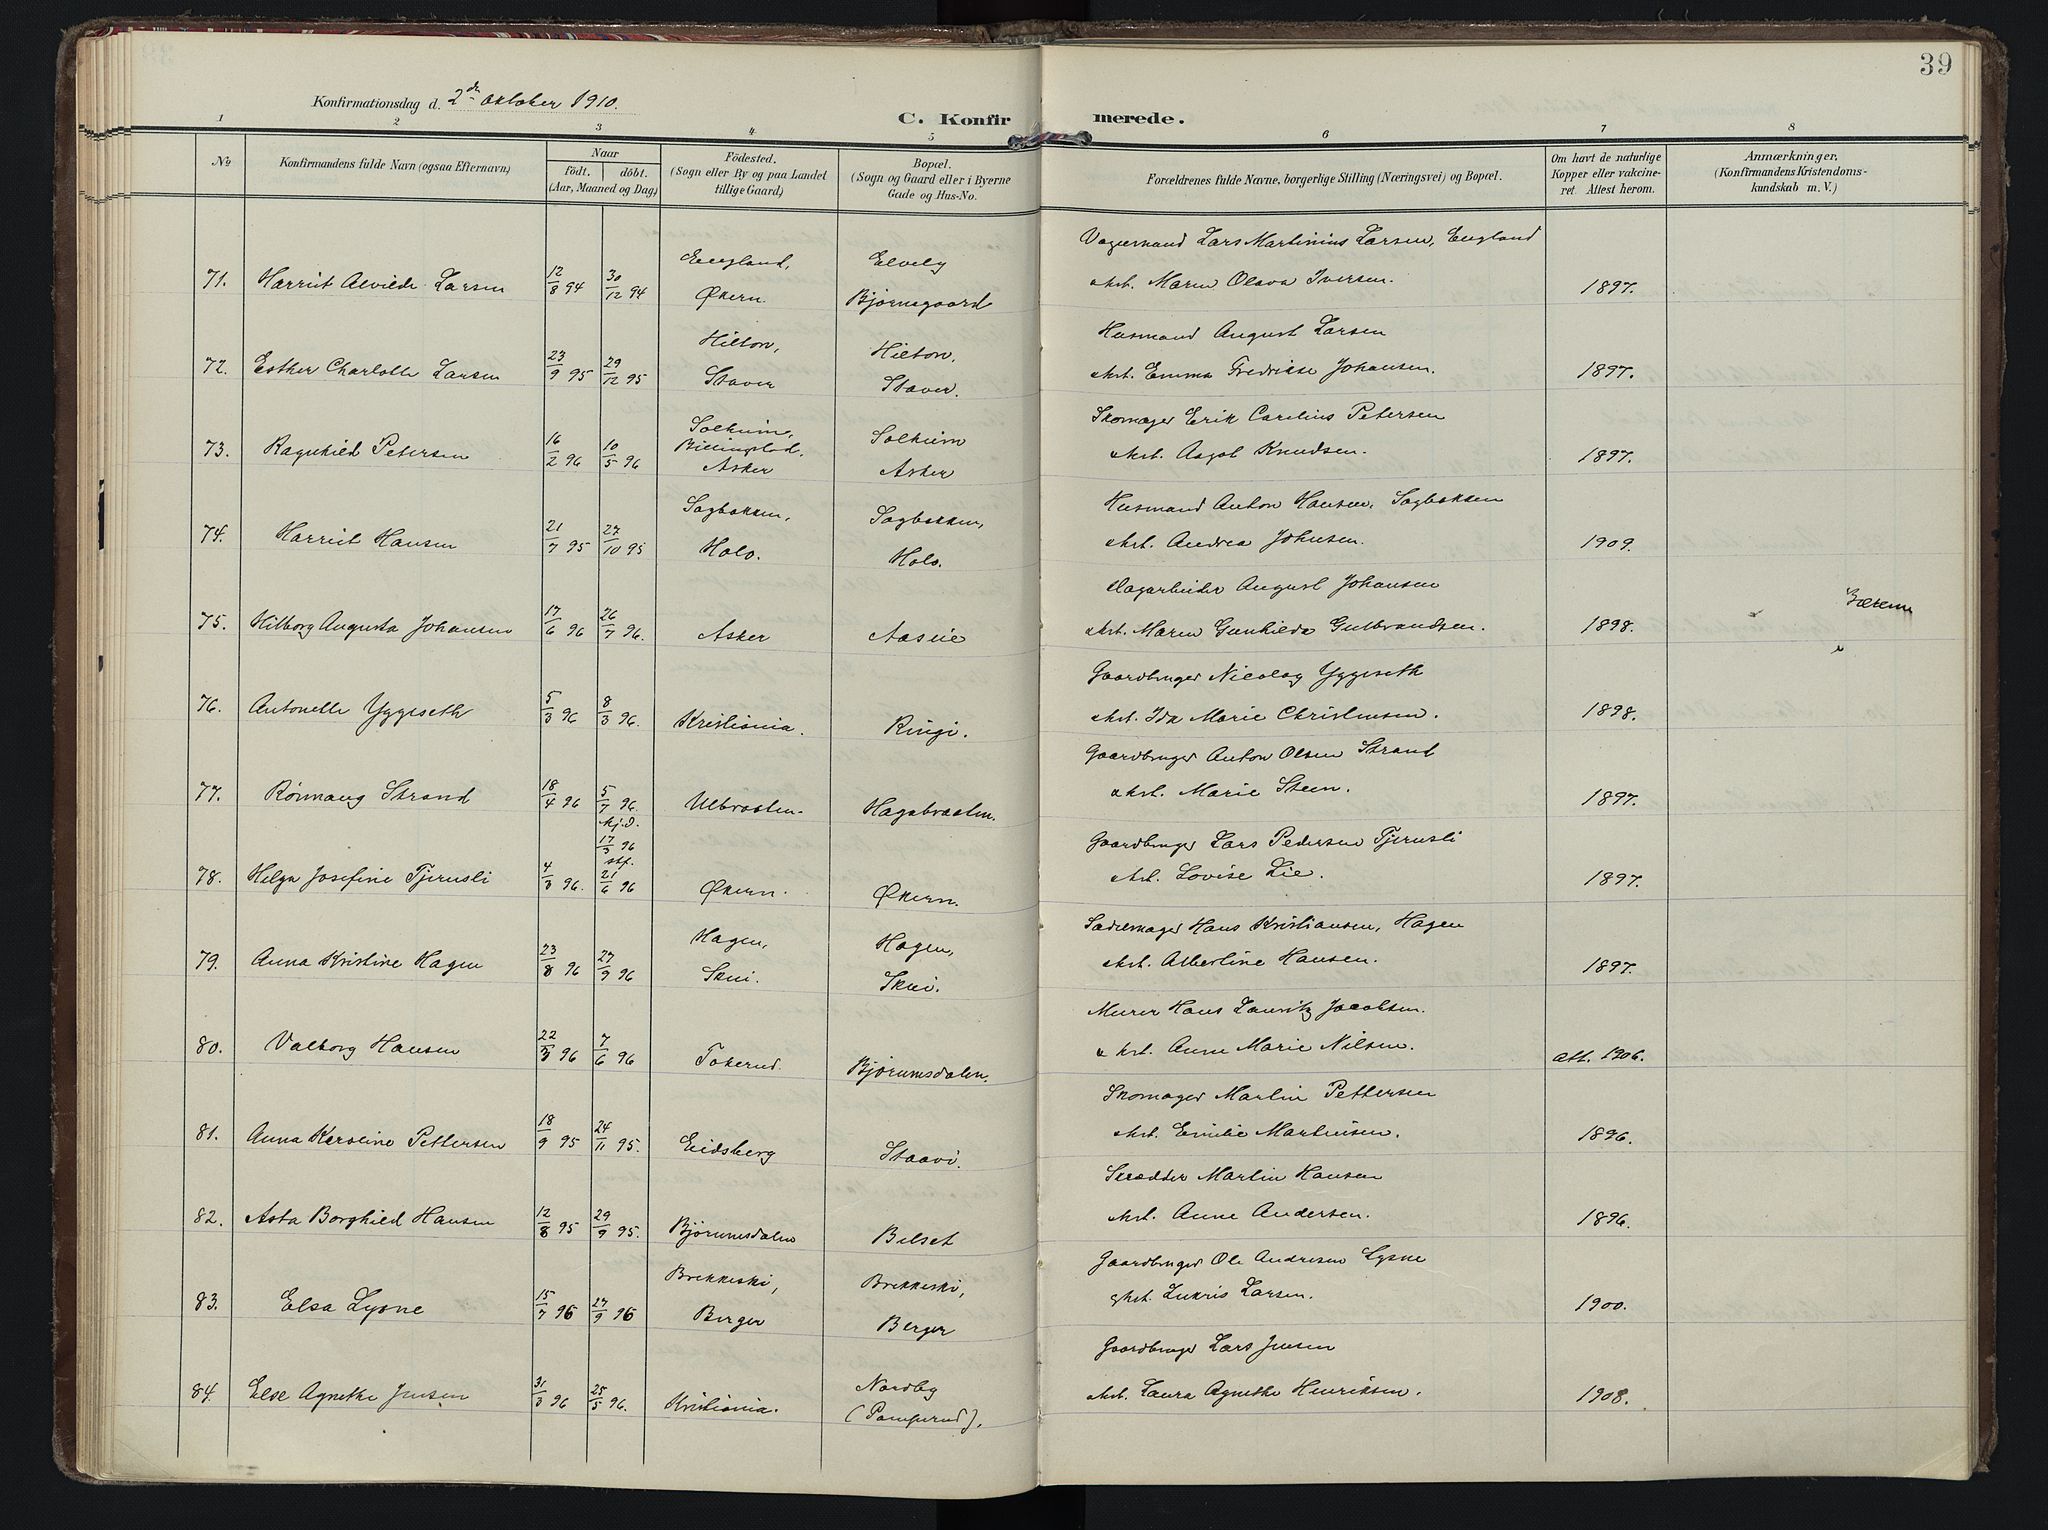 39
Konfirmationsdag d. 2den Oktober 1910.
C. Konfirmerede.
1 2 3 4 5 6 7 8
No
Konfirmandens fulde Navn (ogsaa Efternavn)
Naar
födt. döbt.
(Aar, Maaned og Dag)
Födested.
(Sogn eller By og paa Landet
tillige Gaard)
Bopæl.
(Sogn og Gaard eller i Byerne
Gade og Hus-No.
Forældrenes fulde Navne, borgerlige Stilling (Næringsvei) og Bopæl.
Om havt de naturlige
Kopper eller vakcine-
ret. Attest herom.
Anmærkninger.
(Konfirmandens Kristendoms-
kundskab m. V.)
71. Harriet Alvilde Larsen 12/8 94 30/12 94
England, Økern.
Elvely Bjørnsgaard
Lars Martinius Larsen, England
Maren Olava Iversen.
1897.
72. Esther Charlotte Larsen 23/9 95 29/12 95
Hilton, Staver
Hilton, Staver.
Husmand August Larsen
Emma Fredrikke Johansen.
1897.
73. Ragnhild Petersen 16/2 96 10/5 96
Solheim, Billingstad, Asker
Solheim Asker
Skomager Erik Carelius Petersen
Aagot Knudsen.
1897.
74. Harriet Hansen 21/7 95 27/10 95
Sagbakken, Holo.
Sagbakken, Holo.
Husmand Anton Hansen, Sagbakken
Andrea Johnsen.
1909.
75. Hilborg Augusta Johansen 17/6 96 26/7 96.
Asker
Dagarbeider August Johansen
Maren Gunhilda Gulbrandsen.
1898.
76. Antonette Yggeseth 5/3 96 8/3 96.
Kristiania.
Ringi.
Gaardbruger Nicolay Yggeseth
Ida Marie Christensen.
1898.
77. Rønnaug Strand 18/4 96 5/7 96.
Ulbraaten
Hagabraaten.
Gaardbruger Anton Olsen Strand
Marie Steen.
1897.
78. Helga Josefine Tjernsli 4/3 96. hj.d. 17/3 96 stf. 21/6 96
Økern.
Økern.
Gaardbruger Lars Pedersen Tjernsli
Lovise Lie.
1897.
79. Anna Kristine Hagen 23/8 96 27/9 96
Hagen, Skui.
Hagen, Skui.
Sadelmager Hans Kristiansen, Hagen
Albertine Hansen.
1897.
80. Valborg Hansen 22/3 96 7/6 96
Tokerud.
Bjørumsdalen.
Murer Hans Lauritz Jacobsen.
Anne Marie Nilsen.
Att. 1906.
81. Anna Karoline Pettersen 18/9 95 24/11 95.
Eidsberg
Staavi.
Skomager Martin Pettersen
Emilie Martinsen.
1896.
82. Asta Borghild Hansen 12/8 95 29/9 95.
Bjørumsdalen
Belset
Skrædder Martin Hansen
Anne Andersen.
1896.
83. Elsa Lysne 15/7 96 27/9 96
Brekkeski, Berger
Brekkeski, Berger
Gaardbruger Ole Andresen Lysne
Larsen.
1900.
84. Else Agnethe Jensen 31/3 96 25/5 96.
Kristiania.
Nordby (Pamperud).
Gaardbruger Lars Jensen
Laura Agnethe Henriksen.
1908.